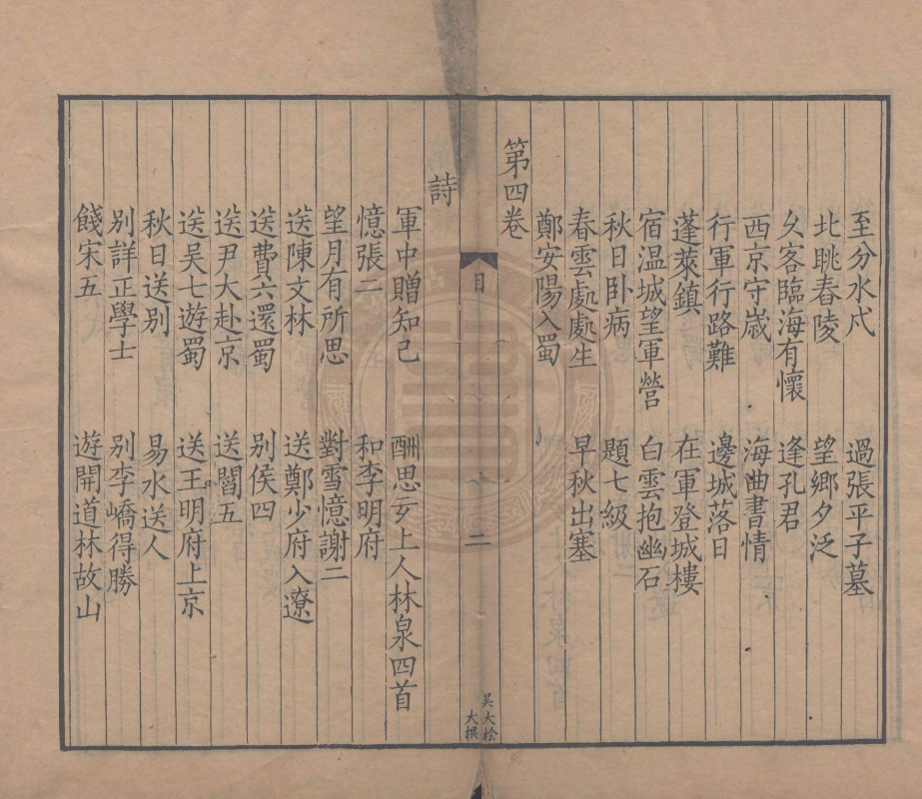 至分水戍　過張平子墓
北眺舂陵　望鄉夕泛
久客臨海有懷　逢孔君
西京守歲　海曲書情
行軍行路難　邊城落日
蓬萊鎮　在軍登城樓
宿温城望軍營　白雲抱幽石
秋日卧病　題七級
春雲處處生　早秋出塞
鄭安陽入蜀
第四卷
目
二
吳大栓
大棋
詩
軍中贈知己　酬思玄上人林泉四首
憶張二　和李明府
望月有所思　對雪憶謝二
送陳文林　送鄭少府入遼
送費六還蜀　别侯四
送尹大赴京　送閻五
送吴七遊蜀　送王明府上京
秋日送别　易水送人
别詳正學士　别李嶠得勝
餞宋五　遊開道林故山